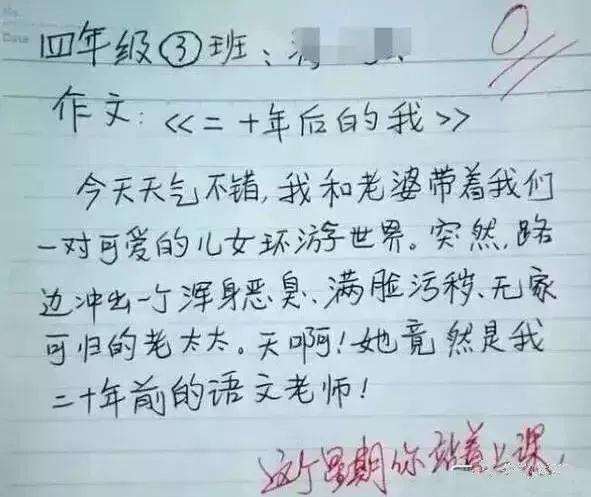 No.
Date
四年级③班:
0
作文:《二十年后的我》
今天天气不错,我和老婆带着我们
一对可爱的儿女环游世界。突然,路
边冲出一个浑身恶臭、满脸污秽、无家
可归的老太太。天啊!她竟然是我
二十年前的语文老师!
这个星期你站着上课.